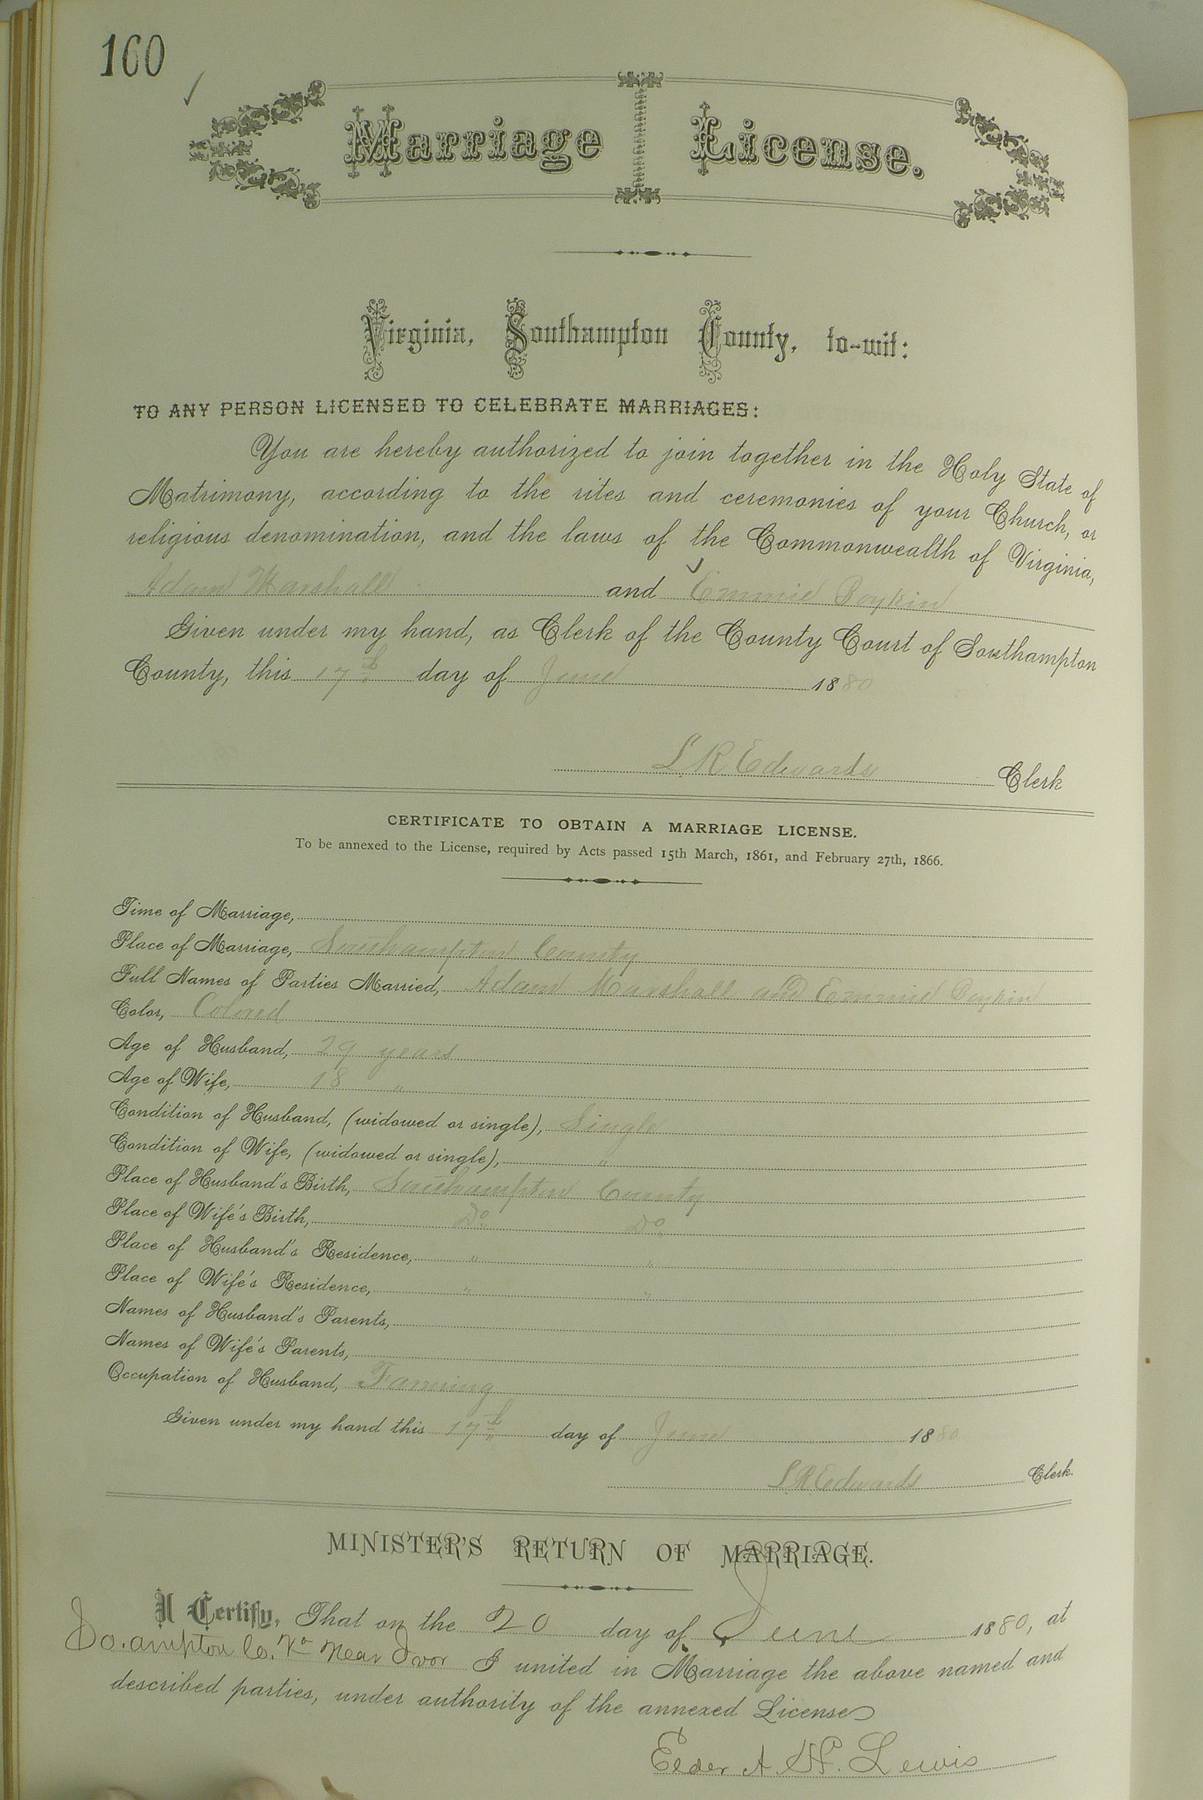 160
Marriage License.
Virginia, Southampton County, to-wit:
TO ANY PERSON LICENSED TO CELEBRATE MARRIAGES:
You are hereby authorized to join together in the Holy State of
Matrimony, according to the rites and ceremonies of your Church, or
religious denomination, and the laws of the Commonwealth of Virginia,
Adam Marshall and Emmie Boykin
Given under my hand, as Clerk of the County Court of Southampton
County, this 17th day of June 1880
L R Edwards Clerk
CERTIFICATE TO OBTAIN A MARRIAGE LICENSE.
To be annexed to the License, required by Acts passed 15th March, 1861, and February 27th, 1866.
Time of Marriage,
Place of Marriage, Southampton County
Full Names of Parties Married, Adam Marshall and Emmie Boykin
Color, Colored
Age of Husband, 29 years
Age of Wife, 18 "
Condition of Husband, (widowed or single), Single
Condition of Wife, (widowed or single), "
Place of Husband's Birth, Southampton County
Place of Wife's Birth, Do Do
Place of Husband's Residence, " "
Place of Wife's Residence, " "
Names of Husband's Parents,
Names of Wife's Parents,
Occupation of Husband, Farming
Given under my hand this 17th day of June 1880
L R Edwards Clerk.
MINISTER'S RETURN OF MARRIAGE.
I Certify, That on the 20 day of June 1880, at
So.ampton Co. Va Near Ivor I united in Marriage the above named and
described parties, under authority of the annexed License
Elder A. W. Lewis